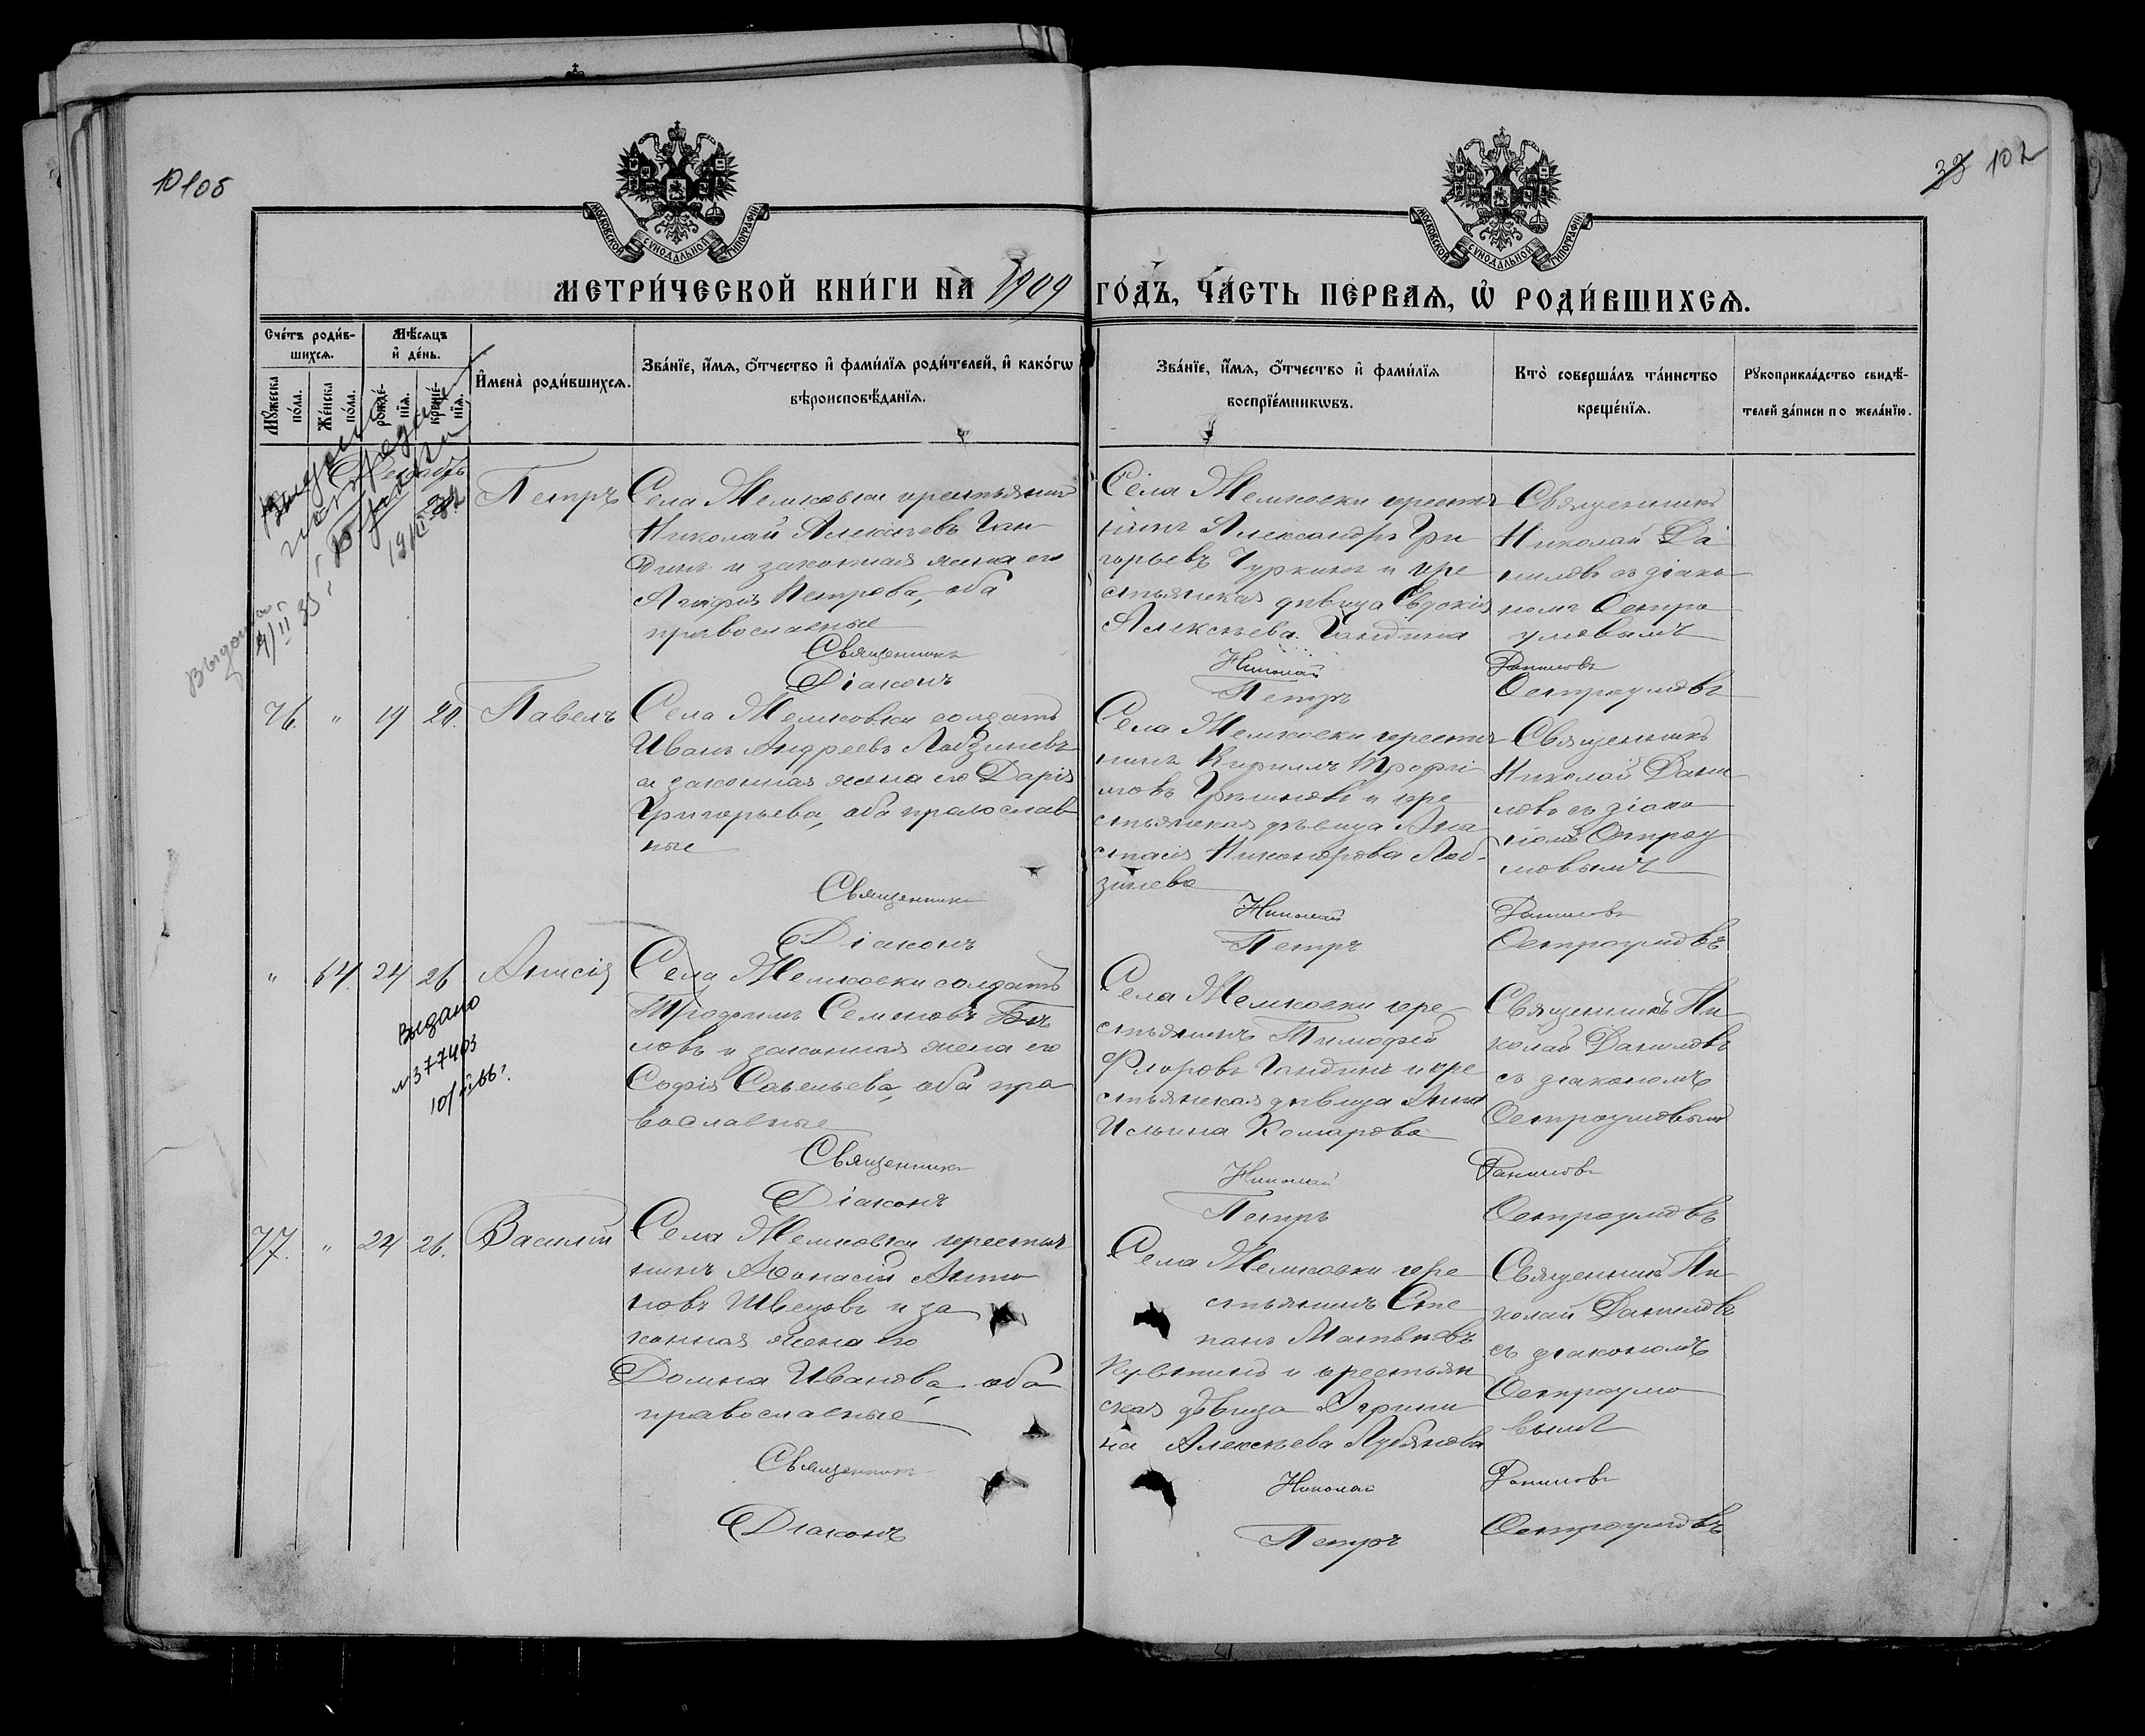 10105
33 102
МОСКОВСКОЙ СУНОДАЛЬНОЙ ТИПОГРАФІИ
МОСКОВСКОЙ СУНОДАЛЬНОЙ ТИПОГРАФІИ
МЕТРИ́ЧЕСКОЙ КНИ́ГИ НА 1909 ГО́ДЪ, ЧА́СТЬ ПЕ́РВАѦ, Ѡ҆ РОДИ́ВШИХСѦ.
Сче́тъ роди́в-
шихсѧ.
Мꙋ́жеска
по́ла.
Же́нска
по́ла.
Мѣ́сѧцъ
и҆ де́нь.
рожде́-
нїѧ.
креще́-
нїѧ.
И҆мена̀ роди́вшихсѧ.
Зва́нїе, и҆́мѧ, ѻ҆́тчество и҆ фами́лїѧ роди́телей, и҆ како́гѡ
вѣроисповѣ́данїѧ.
Зва́нїе, и҆́мѧ, ѻ҆́тчество и҆ фами́лїѧ
воспрїе́мникѡвъ.
Кто̀ соверша́лъ та́инство
креще́нїѧ.
Рꙋкоприкла́дство свидѣ́-
телей за́писи по жела́нїю.
Петръ
Села Мемковки крестьянинъ
Николай Алексѣевъ Ган
динъ и законная жена его
Агафія Петрова, оба
православные
Священникъ
Діаконъ
Села Мемковки крестья
нинъ Александръ Гри
горьевъ Туркинъ и кре
стьянская дѣвица Евдокія
Алексѣева Гандина
Николай
Петръ
Священникъ
Николай Да
ниловъ съ діако
номъ Остро
умовымъ
Даниловъ
Остроумовъ
Выдана
9/II 35 г.
76. " 19 20. Павелъ
Села Мемковки солдатъ
Иванъ Андреевъ Лобзиневъ
и законная жена его Дарія
Григорьева, оба православ
ные
Священникъ
Діаконъ
Села Мемковки крестья
нинъ Кириллъ Трофи
мовъ и кре
стьянская дѣвица Ана
стасія Никонорова Лоб-
зинева
Николай
Петръ
Священникъ
Николай Дани
ловъ съ діако
номъ Остроу
мовымъ
Даниловъ
Остроумовъ
" 64. 24 26 Анисія
Выдано
№377403
Села Мемковки солдатъ
Трофимъ Семеновъ Бѣ
ловъ и законная жена его
Софія Савельева, оба пра
вославные
Священникъ
Діаконъ
Села Мемковки кре
стьянинъ Тимофей
Флоровъ Гандинъ и кре
стьянская дѣвица Анна
Ильина Комарова
Николай
Петръ
Священникъ Ни
колай Даниловъ
съ діакономъ
Остроумовымъ
Даниловъ
Остроумовъ
77. " 24 26. Василій
Села Мемковки крестья
нинъ Афанасій Анто
новъ Швецовъ и за
конная жена его
Домна Иванова, оба
православные
Священникъ
Діаконъ
Села Мемковки кре
стьянинъ Сте
панъ Матвѣевъ
и крестьян
ская дѣвица Агрипи
на Алексѣева Лубянова
Николай
Петръ
Священникъ Ни
колай Даниловъ
съ діакономъ
Остроумо
вымъ
Даниловъ
Остроумовъ